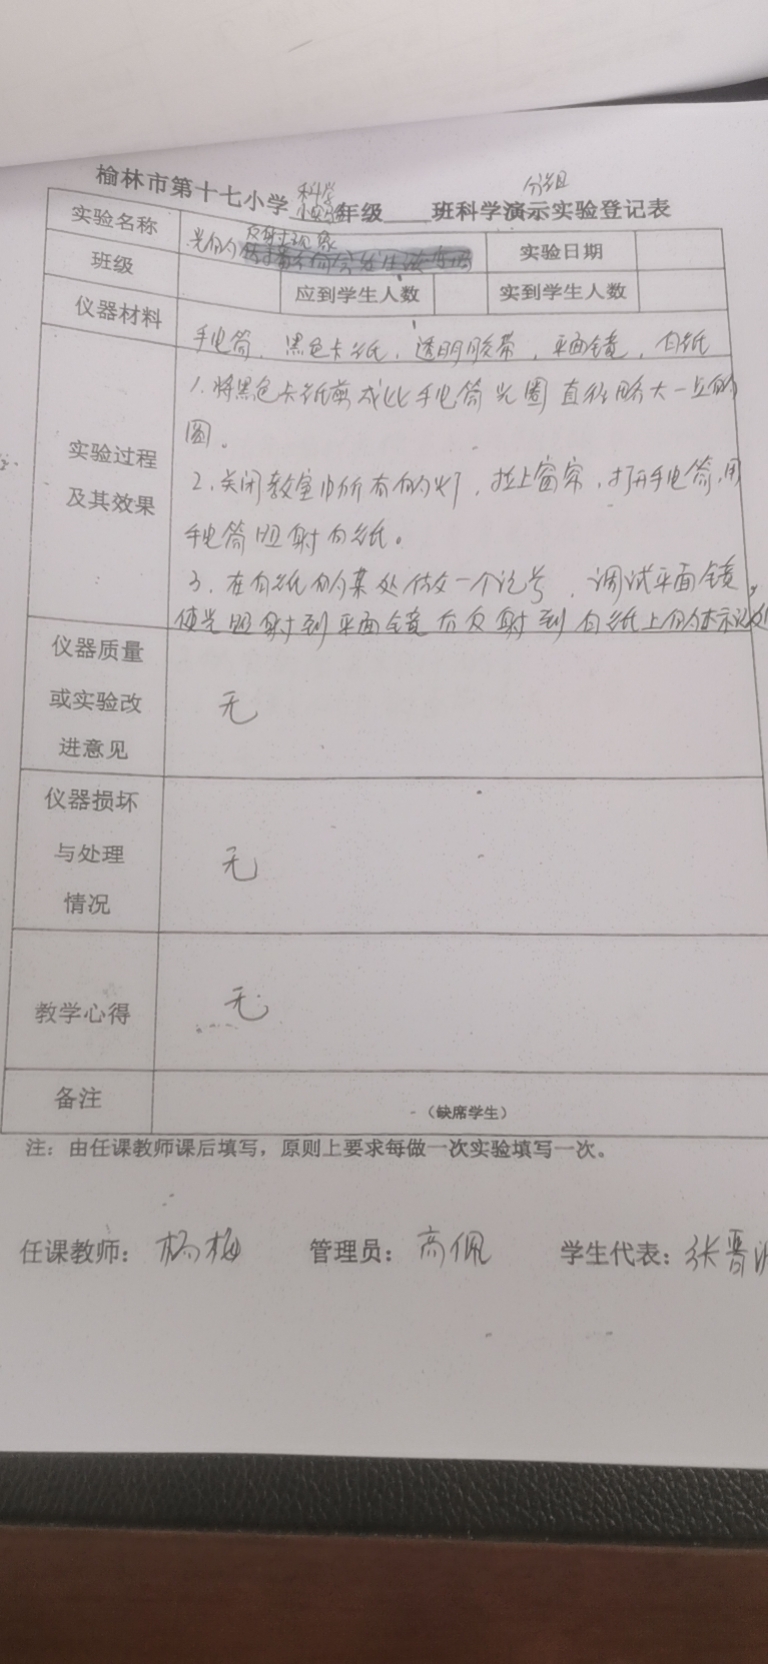 分组
科学
榆林市第十七小学 年级 班科学演示实验登记表
实验名称 光的反射现象 实验日期
班级 应到学生人数 实到学生人数
仪器材料 手电筒、黑色卡纸、透明胶带、平面镜、白纸
实验过程及其效果
1.将黑色卡纸剪成比手电筒光圈直径略大一点的
圆。
2.关闭教室中所有的灯,拉上窗帘,打开手电筒,用
手电筒照射白纸。
3.在白纸的某处做一个记号,调试平面镜,
使光照射到平面镜后反射到白纸上的标记处
仪器质量
或实验改 无
进意见
仪器损坏
与处理 无
情况
教学心得 无
备注 (缺席学生)
注:由任课教师课后填写,原则上要求每做一次实验填写一次。
任课教师:杨梅 管理员:高佩 学生代表:张晋